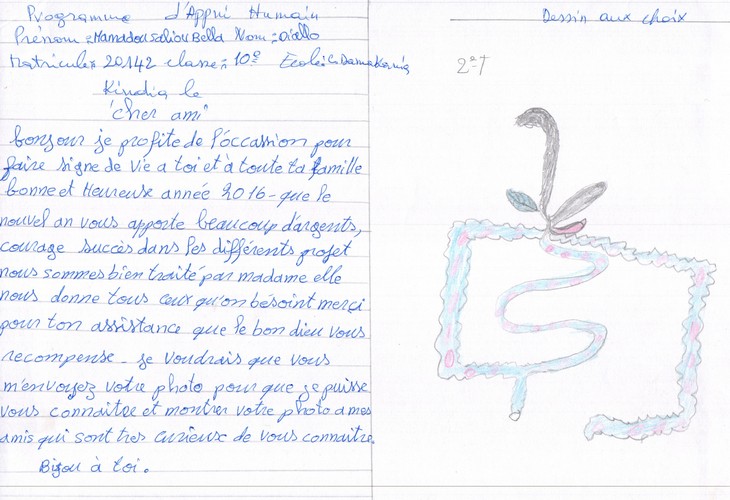 Programme d'Appui Humain
Prénom : Mamadou saliou Bella Nom : diallo
Matricule : 20142 classe : 10e Ecole : C. Damakania
Kindia le
"cher ami"
bonjour je profite de l'occassion pour
faire signe de vie a toi et à toute ta famille
bonne et Heureuse année 2016 - que le
nouvel an vous apporte beaucoup d'argents,
courage succès dans les différents projet
nous sommes bien traité par madame elle
nous donne tous ceux qu'on bésoint merci
pour ton assistance que le bon dieu vous
recompense - je voudrais que vous
m'envoyez votre photo pour que je puisse
vous connaitre et montrer votre photo a mes
amis qui sont tres curieux de vous connaitre.
Bisou à toi.
Dessin aux choix